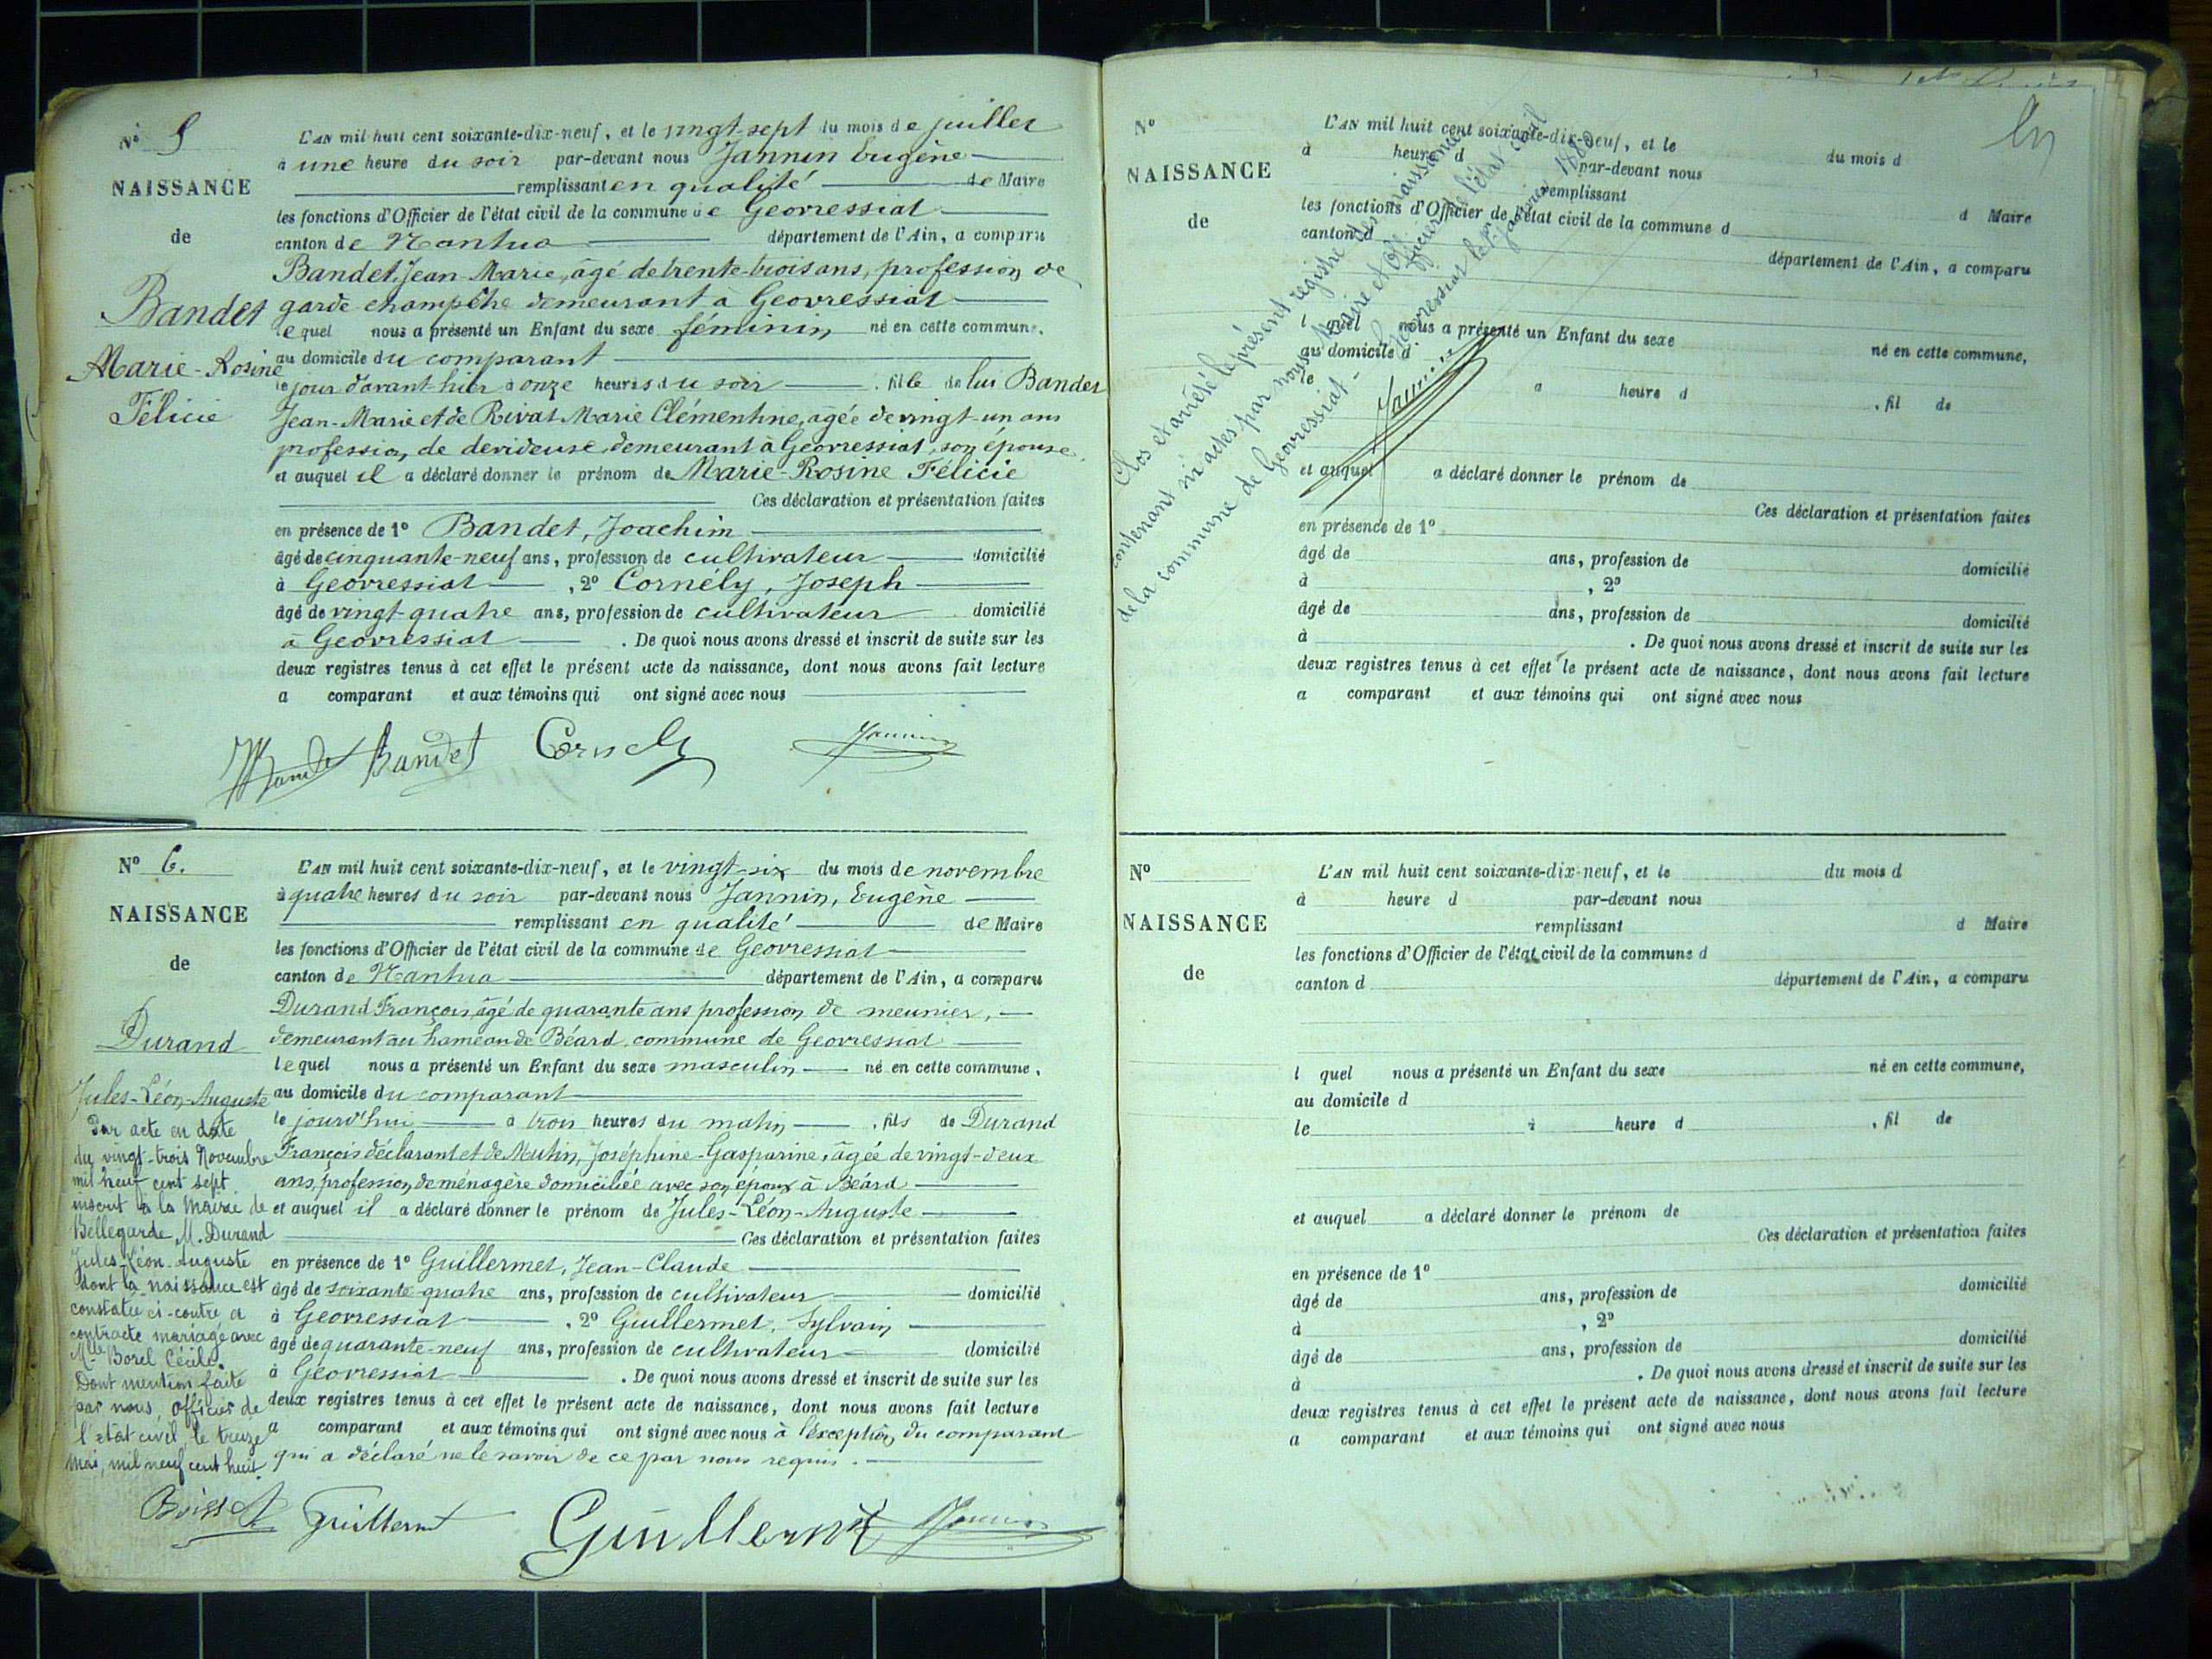 No 5
NAISSANCE
de
Bandet
Marie-Rosine
Félicie
L'AN mil huit cent soixante-dix-neuf, et le vingt-sept du mois de juillet
à une heure du soir par-devant nous Jannin Eugène
remplissant en qualité de Maire
les fonctions d'Officier de l'état civil de la commune de Geovressiat
canton de Nantua département de l'Ain, a comparu
Bandet, Jean-Marie, âgé de trente-trois ans, profession de
garde champêtre demeurant à Geovressiat
lequel nous a présenté un Enfant du sexe féminin né en cette commune,
au domicile du comparant
le jour d'avant hier à onze heures du soir , fille de lui Bandet
Jean-Marie et de Rivat Marie Clémentine, agée de vingt-un ans
profession de devideuse, demeurant à Geovressiat, son épouse,
et auquel il a déclaré donner le prénom de Marie-Rosine Félicie
Ces déclaration et présentation faites
en présence de 1º Bandet, Joachim
âgé de cinquante-neuf ans, profession de cultivateur domicilié
à Geovressiat , 2º Cornély, Joseph
âgé de vingt-quatre ans, profession de cultivateur domicilié
à Geovressiat . De quoi nous avons dressé et inscrit de suite sur les
deux registres tenus à cet effet le présent acte de naissance, dont nous avons fait lecture
a comparant et aux témoins qui ont signé avec nous
Bandet Bandet Cornely Jannin
Nº 6.
NAISSANCE
de
Durand
Jules-Léon-Auguste
Par acte en date
du vingt-trois Novembre
mil neuf cent sept
inscrit à la Mairie de
Bellegarde, M. Durand
Jules-Léon-Auguste
dont la naissance est
constatée ci-contre a
contracté mariage avec
Mlle Borel Cécile.
Dont mention faite
par nous, officier de
l'état civil, le treize
Mai, mil neuf cent huit.
L'AN mil huit cent soixante-dix-neuf, et le vingt-six du mois de novembre
à quatre heures du soir par-devant nous Jannin, Eugène
remplissant en qualité de Maire
les fonctions d'Officier de l'état civil de la commune de Geovressiat
canton de Nantua département de l'Ain, a comparu
Durand François, âgé de quarante ans profession de meunier,
demeurant au hameau de Béard, commune de Geovressiat
lequel nous a présenté un Enfant du sexe masculin né en cette commune,
au domicile du comparant
le jourd'hui à trois heures du matin , fils de Durand
François déclarant et de Mutin, Joséphine-Gasparine, âgée de vingt-deux
ans, profession de ménagère domiciliée avec son époux à Béard
et auquel il a déclaré donner le prénom de Jules-Léon-Auguste
Ces déclaration et présentation faites
en présence de 1º Guillermet, Jean-Claude
âgé de soixante-quatre ans, profession de cultivateur domicilié
à Geovressiat , 2º Guillermet, Sylvain
âgé de quarante-neuf ans, profession de cultivateur domicilié
à Geovressiat . De quoi nous avons dressé et inscrit de suite sur les
deux registres tenus à cet effet le présent acte de naissance, dont nous avons fait lecture
a comparant et aux témoins qui ont signé avec nous à l'exception du comparant
qui a déclaré ne le savoir de ce par nous requis.
Guillermet Guillermet Jannin
Nº
NAISSANCE
de
L'AN mil huit cent soixante-dix-neuf, et le du mois d
à heure d par-devant nous
remplissant d Maire
les fonctions d'Officier de l'état civil de la commune d
canton d département de l'Ain, a comparu
l quel nous a présenté un Enfant du sexe né en cette commune,
au domicile d
le a heure d , fil de
et auquel a déclaré donner le prénom de
Ces déclaration et présentation faites
en présence de 1º
âgé de ans, profession de domicilié
à , 2º
âgé de ans, profession de domicilié
à . De quoi nous avons dressé et inscrit de suite sur les
deux registres tenus à cet effet le présent acte de naissance, dont nous avons fait lecture
a comparant et aux témoins qui ont signé avec nous
Clos et arrêté le présent registre des naissances
contenant six actes par nous Maire et Officier de l'état civil
de la commune de Geovressiat - Geovressiat le 1er janvier
Jannin
Nº
NAISSANCE
de
L'AN mil huit cent soixante-dix-neuf, et le du mois d
à heure d par-devant nous
remplissant d Maire
les fonctions d'Officier de l'état civil de la commune d
canton d département de l'Ain, a comparu
l quel nous a présenté un Enfant du sexe né en cette commune,
au domicile d
le à heure d , fil de
et auquel a déclaré donner le prénom de
Ces déclaration et présentation faites
en présence de 1º
âgé de ans, profession de domicilié
à , 2º
âgé de ans, profession de domicilié
à . De quoi nous avons dressé et inscrit de suite sur les
deux registres tenus à cet effet le présent acte de naissance, dont nous avons fait lecture
a comparant et aux témoins qui ont signé avec nous